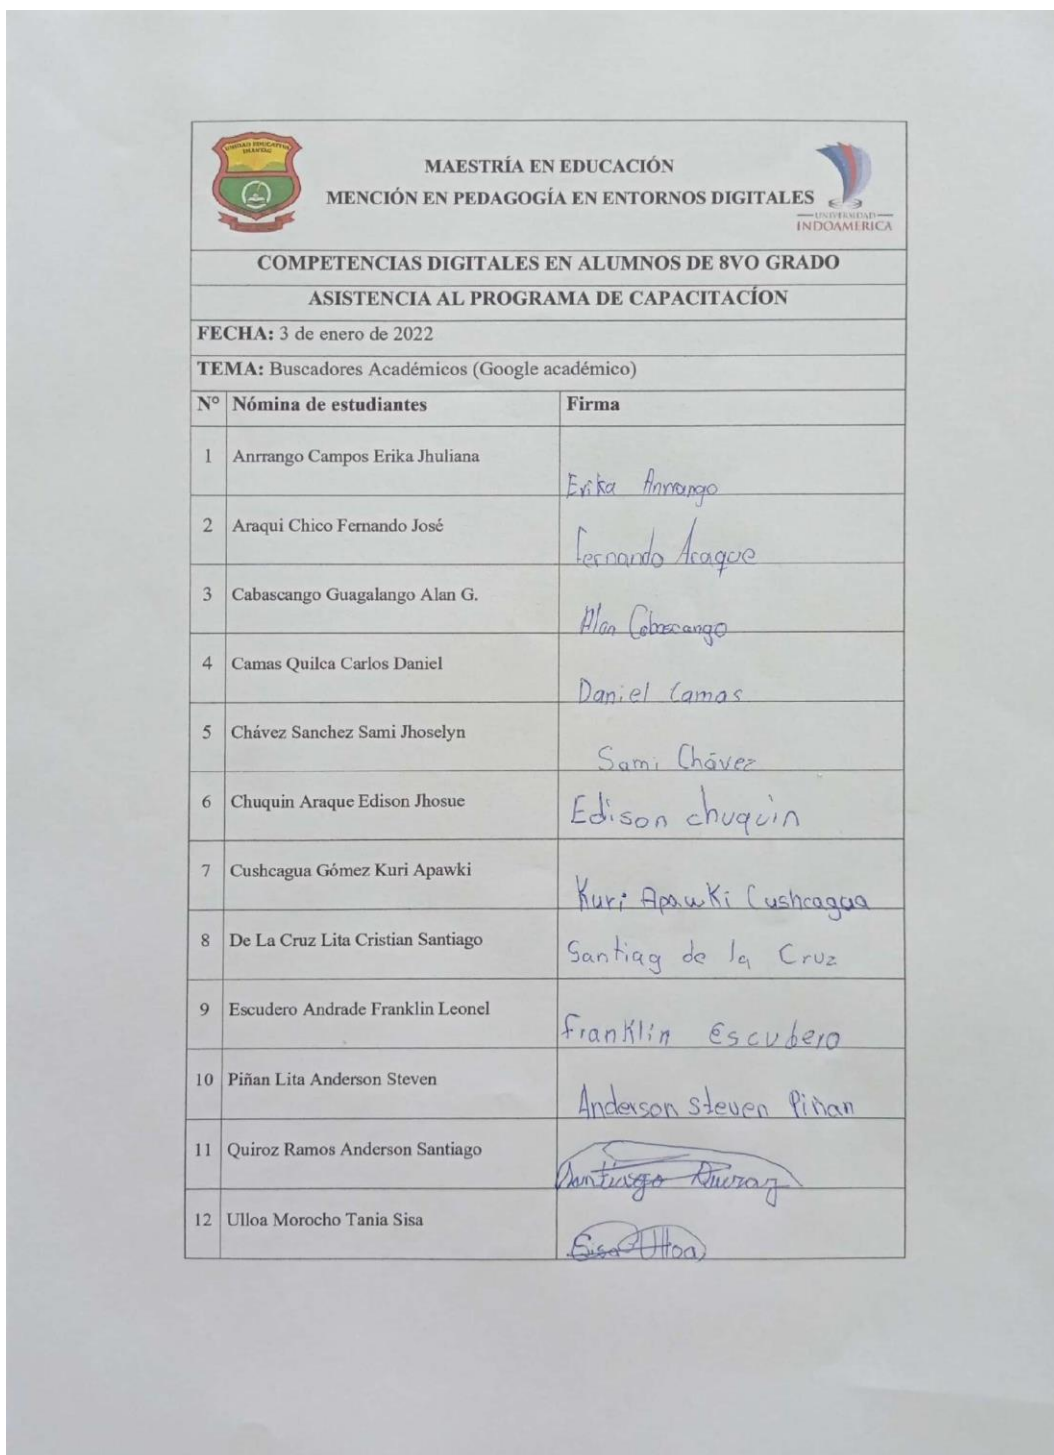 UNIDAD EDUCATIVA
MAESTRÍA EN EDUCACIÓN
MENCIÓN EN PEDAGOGÍA EN ENTORNOS DIGITALES
UNIVERSIDAD
INDOAMÉRICA
COMPETENCIAS DIGITALES EN ALUMNOS DE 8VO GRADO
ASISTENCIA AL PROGRAMA DE CAPACITACÍON
FECHA: 3 de enero de 2022
TEMA: Buscadores Académicos (Google académico)
N° Nómina de estudiantes Firma
1 Anrrango Campos Erika Jhuliana Erika Anrrango
2 Araqui Chico Fernando José Fernando Araque
3 Cabascango Guagalango Alan G. Alan Cabascango
4 Camas Quilca Carlos Daniel Daniel Camas
5 Chávez Sanchez Sami Jhoselyn Sami Chávez
6 Chuquin Araque Edison Jhosue Edison chuquin
7 Cushcagua Gómez Kuri Apawki Kuri Apawki Cushcagua
8 De La Cruz Lita Cristian Santiago Santiag de la Cruz
9 Escudero Andrade Franklin Leonel Franklin Escudero
10 Piñan Lita Anderson Steven Anderson Steven Piñan
11 Quiroz Ramos Anderson Santiago Santiago Quiroz
12 Ulloa Morocho Tania Sisa Sisa Ulloa